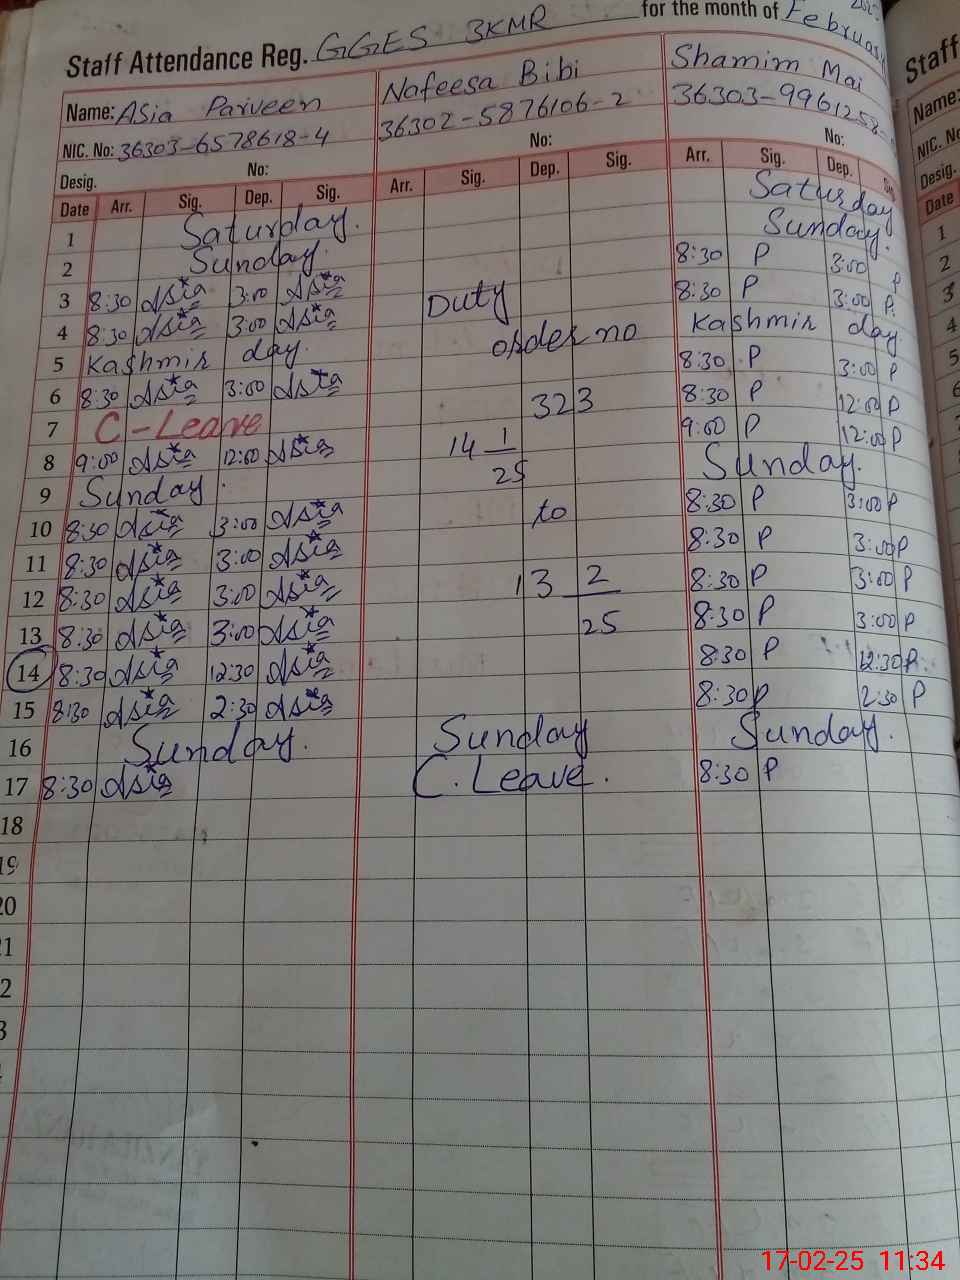 Staff Attendance Reg. GGES 3KMR for the month of February
Name: Asia Parveen Nafeesa Bibi Shamim Mai
NIC. No: 36303-6578618-4 36302-5876106-2 36303-9961258-
Desig. No: No: No:
Date Arr. Sig. Dep. Sig. Arr. Sig. Dep. Sig. Arr. Sig. Dep.
1 Saturday. Saturday
2 Sunday. Sunday.
3 8:30 Asia 3:00 Asia 8:30 P 3:00 P
4 8:30 Asia 3:00 Asia Duty 8:30 P 3:00 P.
5 Kashmir day. order no Kashmir day
6 8:30 Asia 3:00 Asia 8:30 P 3:00 P
7 C-Leave 323 8:30 P 12:00 P
8 9:00 Asia 12:00 Asia 14 1/25 9:00 P 12:00 P
9 Sunday. Sunday.
10 8:30 Asia 3:00 Asia to 8:30 P 3:00 P
11 8:30 Asia 3:00 Asia 8:30 P 3:00 P
12 8:30 Asia 3:00 Asia 13 2/25 8:30 P 3:00 P
13 8:30 Asia 3:00 Asia 8:30 P 3:00 P
14 8:30 Asia 12:30 Asia 8:30 P 12:30 P.
15 8:30 Asia 2:30 Asia 8:30 P 2:30 P
16 Sunday. Sunday Sunday.
17 8:30 Asia C. Leave. 8:30 P
18
19
20
Staff
Name:
NIC. No
Desig.
Date
1
2
3
4
5
6
7
8
9
10
11
12
13
14
15
16
17
17-02-25 11:34